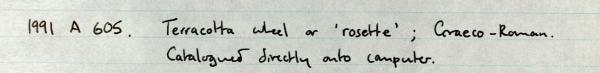 1991 A 605. Terracotta wheel or 'rosette'; Graeco-Roman.
Catalogued directly onto computer.